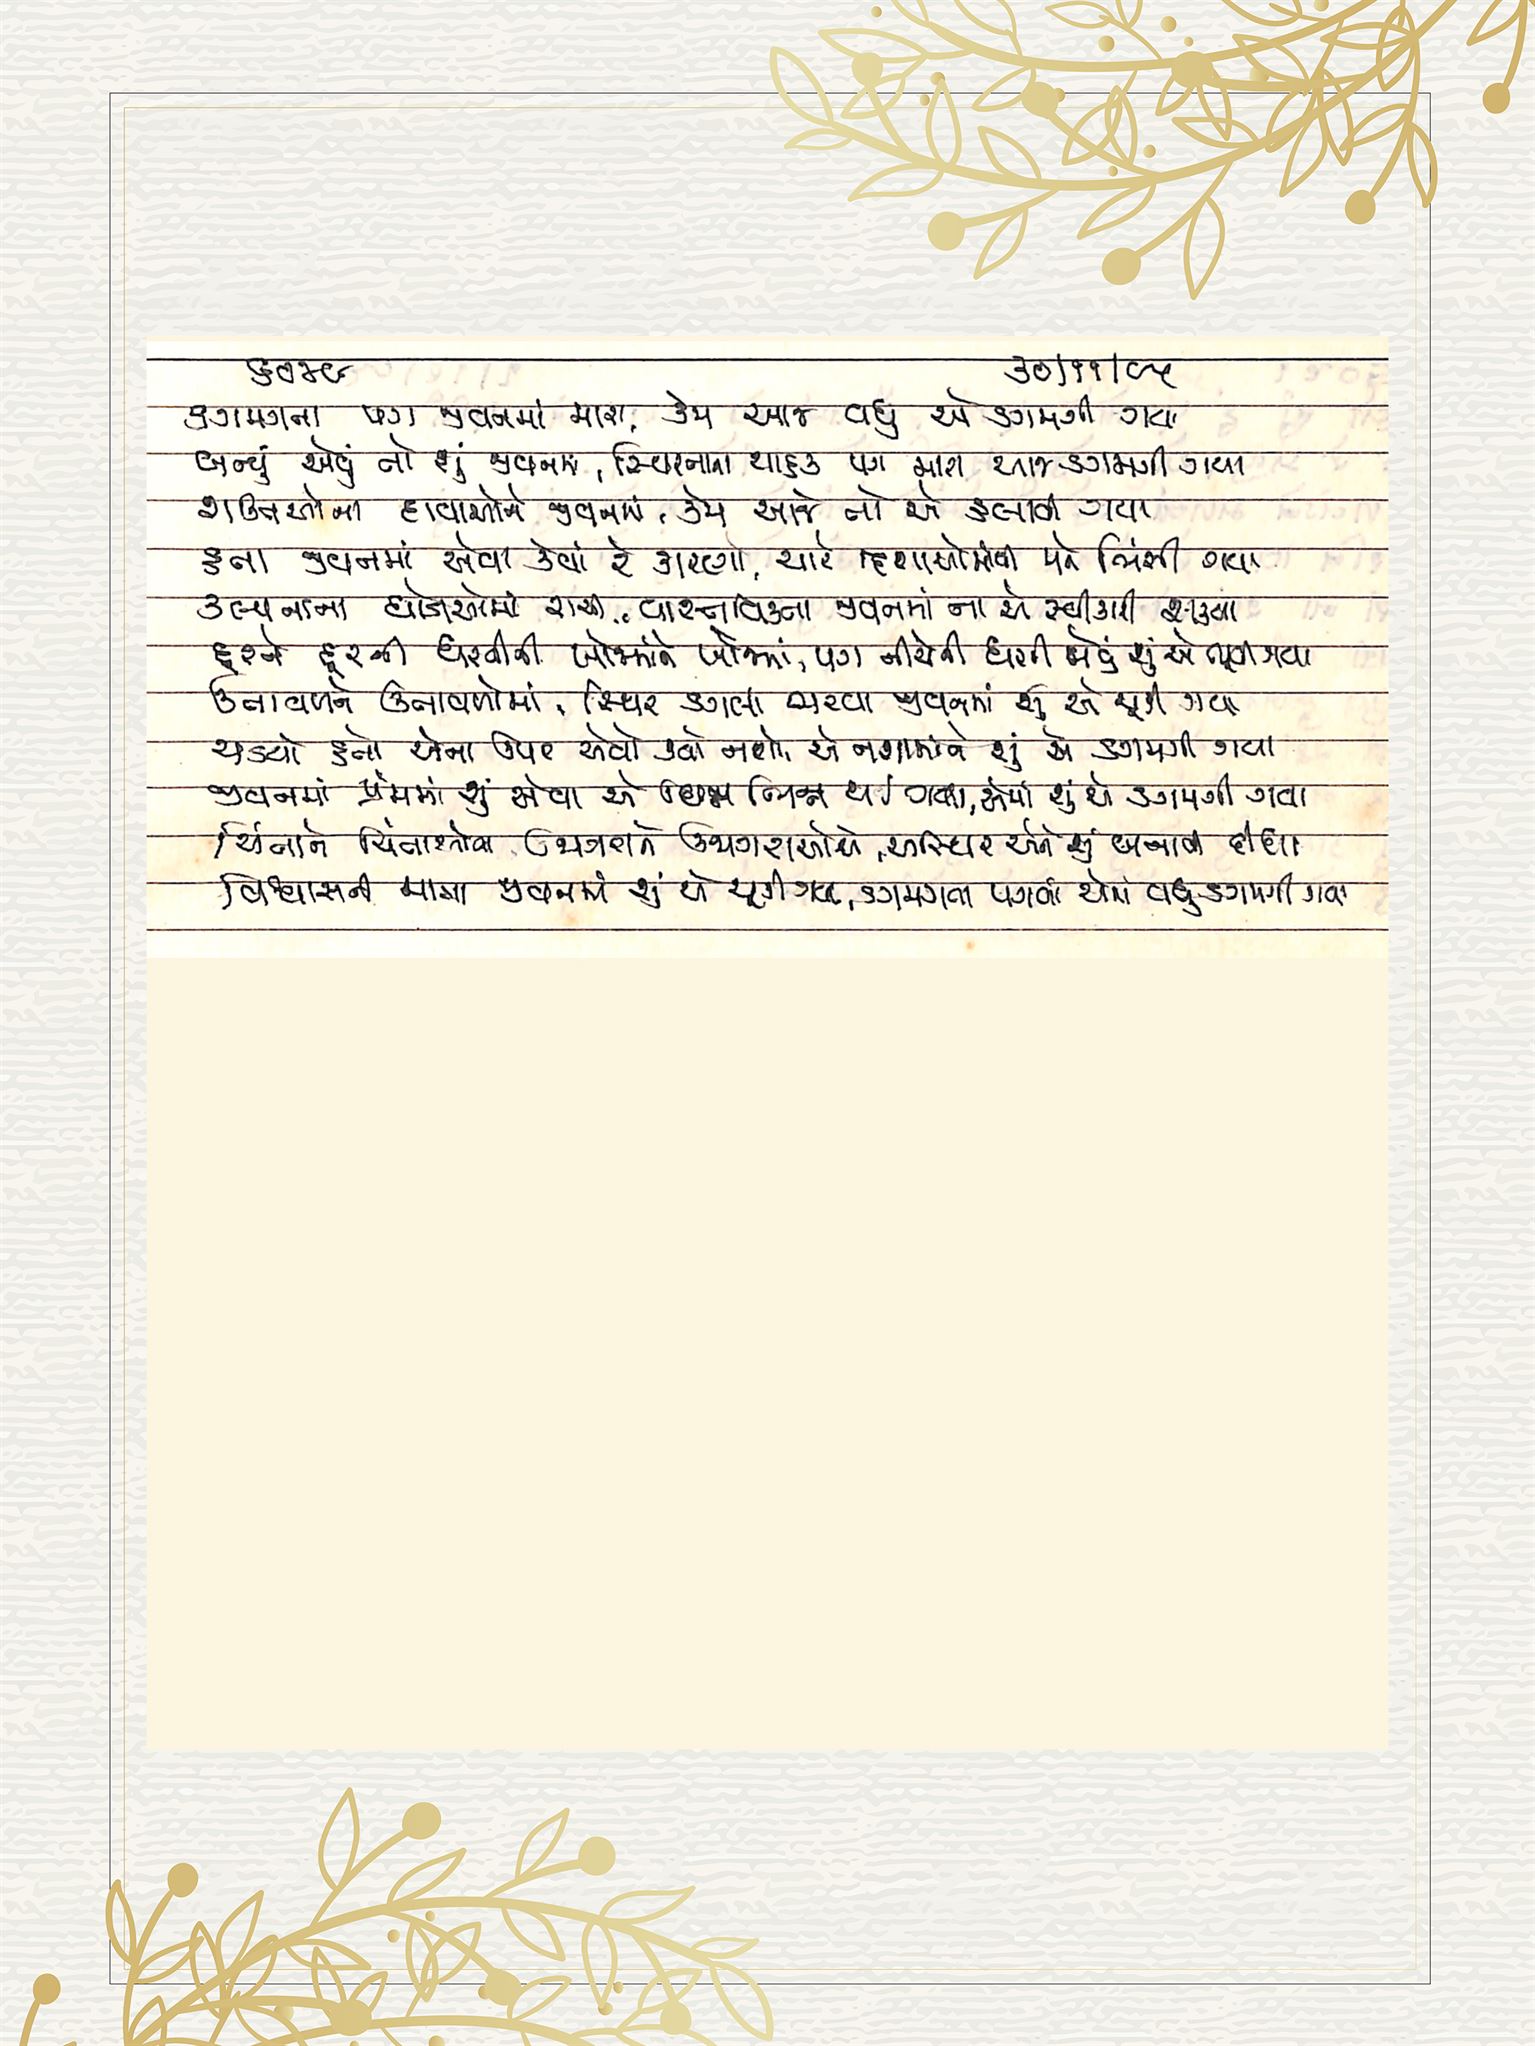 ૩૦/૧૧/૯૫
ડગમગતા પગ જીવનમાં મારા, કેમ આજ વધુ એ ડગમગી ગયા
બન્યું એવું તો શું જીવનમાં, સ્થિરતાના ચાહક પગ મારા આજ ડગમગી ગયા
શક્તિઓના દાવાઓને જીવનમાં, કેમ આજે તો એ હલાવી ગયા
હતા જીવનમાં એવા કેવાં રે કારણો, ચારે દિશાઓમાંથી મને ભિંસી ગયા
કલ્પનાના ઘોડાઓમાં રાચી, વાસ્તવિક્તા જીવનમાં ના એ સ્વીકારી શક્યા
દૂરને દૂરની ધરતીની ખોજમાંને ખોજમાં, પગ નીચેની ધરતી જોવું શું એ ભૂલી ગયા
ઉતાવળને ઉતાવળોમાં, સ્થિર ડગલાં ભરવા જીવનમાં શું એ ચૂકી ગયા
ચડયો હતો એના ઉપર એવો કેવો નશો, એ નશામાંને શું એ ડગમગી ગયા
જીવનમાં પ્રેમમાં શું એવા એ છિન્ન ભિન્ન થઈ ગયા, એમાં શું એ ડગમગી ગયા
ચિંતાને ચિંતાઓએ, ઉચાટને ઉચાટોએ, અસ્થિર એને શું બનાવી દીધા
વિશ્વાસની માત્રા જીવનમાં શું એ ચૂકી ગયા, ડગમગતા પગલાં એમાં વધુ ડગમગી ગયા